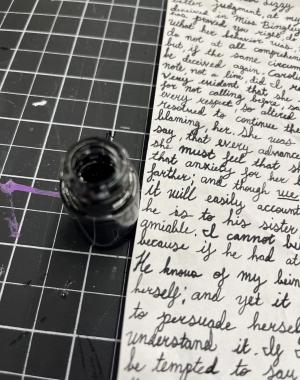 better judgement, at my
deceived in Miss Bingley's
has proved you right, d
what her behavior was
do not at all comprehen
but if the same circum
be deceived again. Caroli
note, not a line, did I re
very evident that she
for not calling before, s
every respect so altered
resolved to continue th
blaming her. She was
say, that every advance
she must feel that sh
that anxiety for her b
farther; and though we
it will easily account
he is to his sister
amiable. I cannot bu
because if he had at
He knows of my bein
herself; and yet it
to persuade herself
understand it. If I
be tempted to say